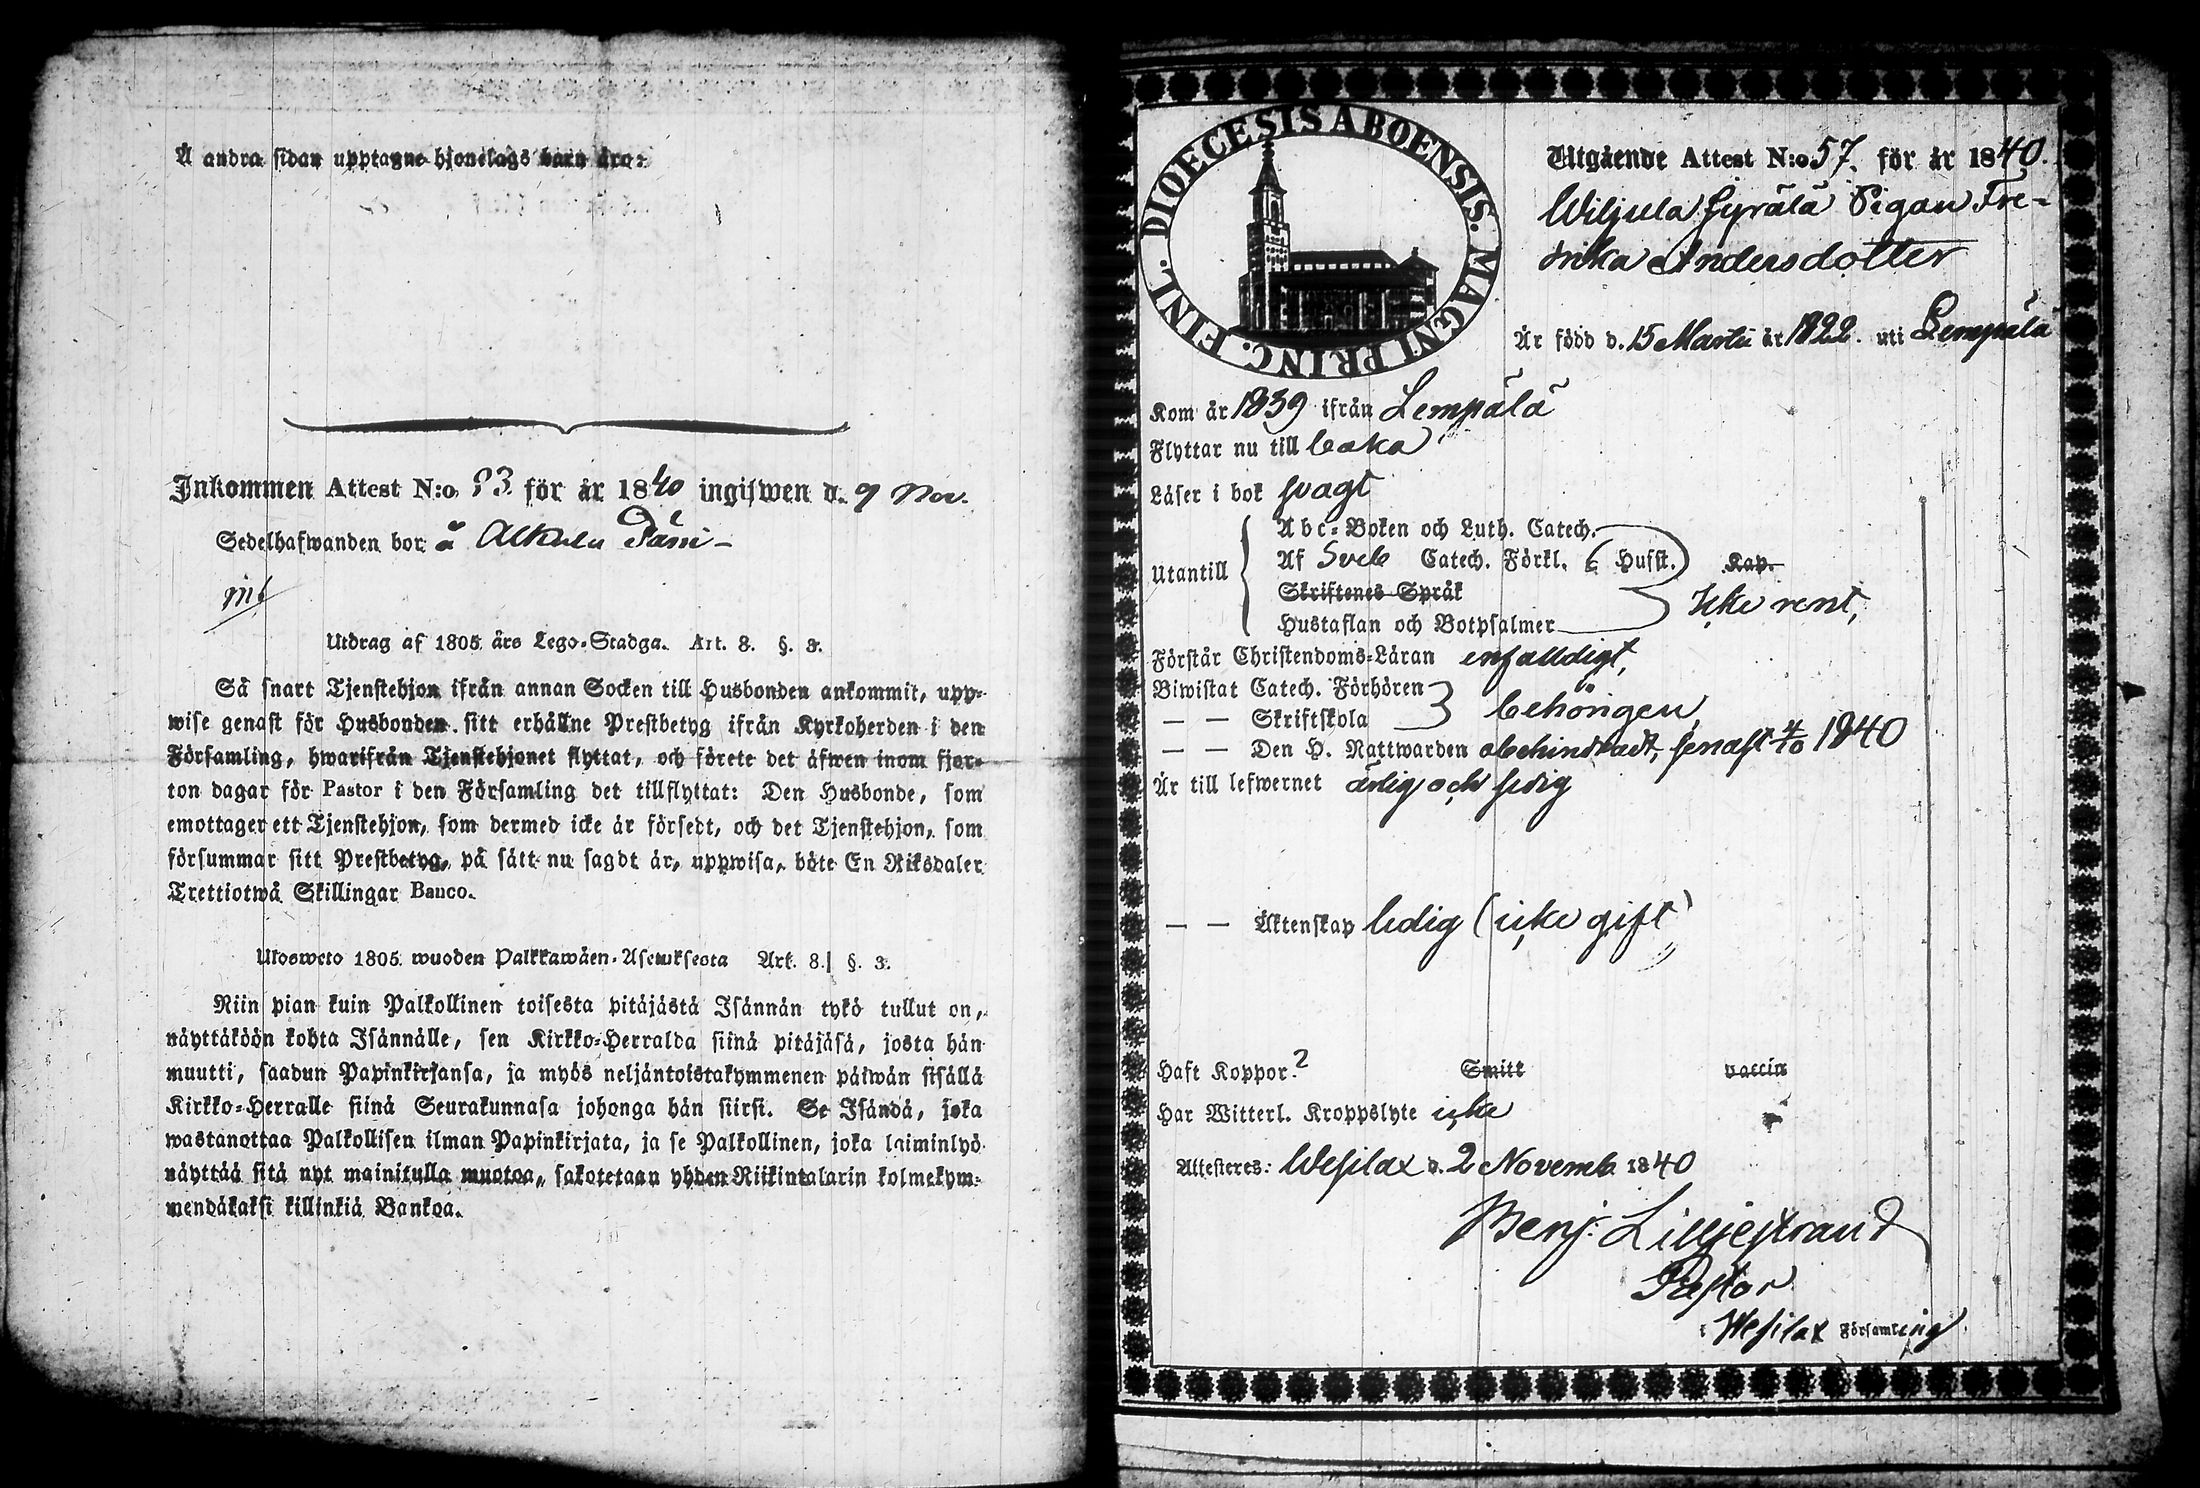 Å andra sidan upptagne hjonelags barn äro:
Inkommen Attest N:o 93 för år 1840 ingifwen d. 9 Nov.
Sedelhafwanden bor å Alkula
Utdrag af 1805 års Lego-Stadga. Art. 8. §. 3.
Så snart Tjenstehjon ifrån annan Socken till Husbonden ankommit, upp-
wise genast för Husbonden sitt erhållne Prestbetyg ifrån Kyrkoherden i den
Församling, hwarifrån Tjenstehjonet flyttat, och förete det äfwen inom fjor-
ton dagar för Pastor i den Församling det tillflyttat: Den Husbonde, som
emottager ett Tjenstehjon, som dermed icke är försedt, och det Tjenstehjon, som
försummar sitt Prestbetyg, på sätt nu sagdt är, uppwisa, böte En Riksdaler
Trettiotwå Skillingar Banco.
Ulosweto 1805 wuoden Palkkawäen-Asetuksesta Art. 8. §. 3.
Niin pian kuin Palkollinen toisesta pitäjästä Isännän tykö tullut on,
näyttäköön kohta Isännälle, sen Kirkko-Herralda siinä pitäjäsä, josta hän
muutti, saadun Papinkirjansa, ja myös neljäntoistakymmenen päiwän sisällä
Kirkko-Herralle siinä Seurakunnasa johonga hän siirsi. Se Isändä, joka
wastanottaa Palkollisen ilman Papinkirjata, ja se Palkollinen, joka laiminlyö
näyttää sitä nyt mainitulla muotoa, sakotetaan yhden Riikintalarin kolmekym-
mendäkaksi killinkiä Bankoa.
DIOECESIS ABOENSIS. MAGNI PRINC. FINL.
Utgående Attest N:o 57. för år 1840.
Wiljula Sipälä Pigan Fre-
drika Andersdotter
Är född d. 15 Martii år 1822. uti Lempälä
Kom år 1839 ifrån Lempälä
Flyttar nu till baka
Läser i bok svagt
Abc-Boken och Luth. Catech.
Utantill Af Sveb Catech. Förkl. 6 Hufst. Kap.
Skriftenes Språk Icke rent,
Hustaflan och Botpsalmer
Förstår Christendoms-Läran enfalldigt,
Biwistat Catech. Förhören
— — Skriftskola behörigen,
— — Den H. Nattwarden obehindradt, senast 4/10 1840
Är till lefwernet ärlig och sedig
— — Äktenskap ledig (icke gift)
Haft Koppor ? Smitt vaccin
Har Witterl. Kroppslyte icke
Attesteres: Wesilax d. 2 Novemb 1840
Benj. Lilljestrand
Pastor
i Wesilax Församling